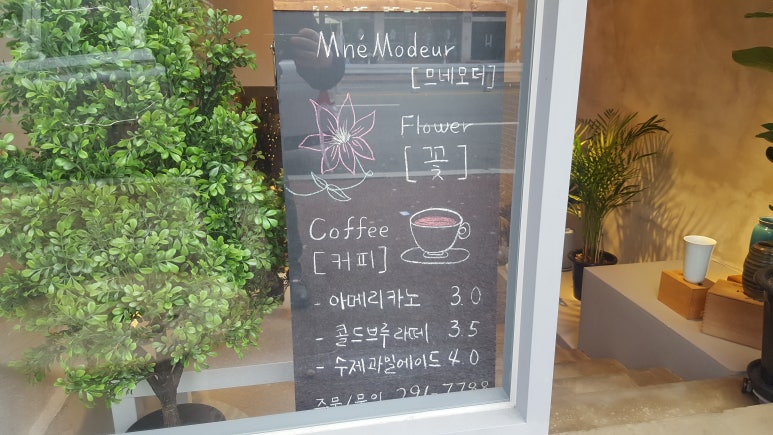 MnéModeur
[므네모더]
Flower
[꽃]
Coffee
[커피]
- 아메리카노 3.0
- 콜드브루라떼 3.5
- 수제과일에이드 4.0
주문/문의 291-7788